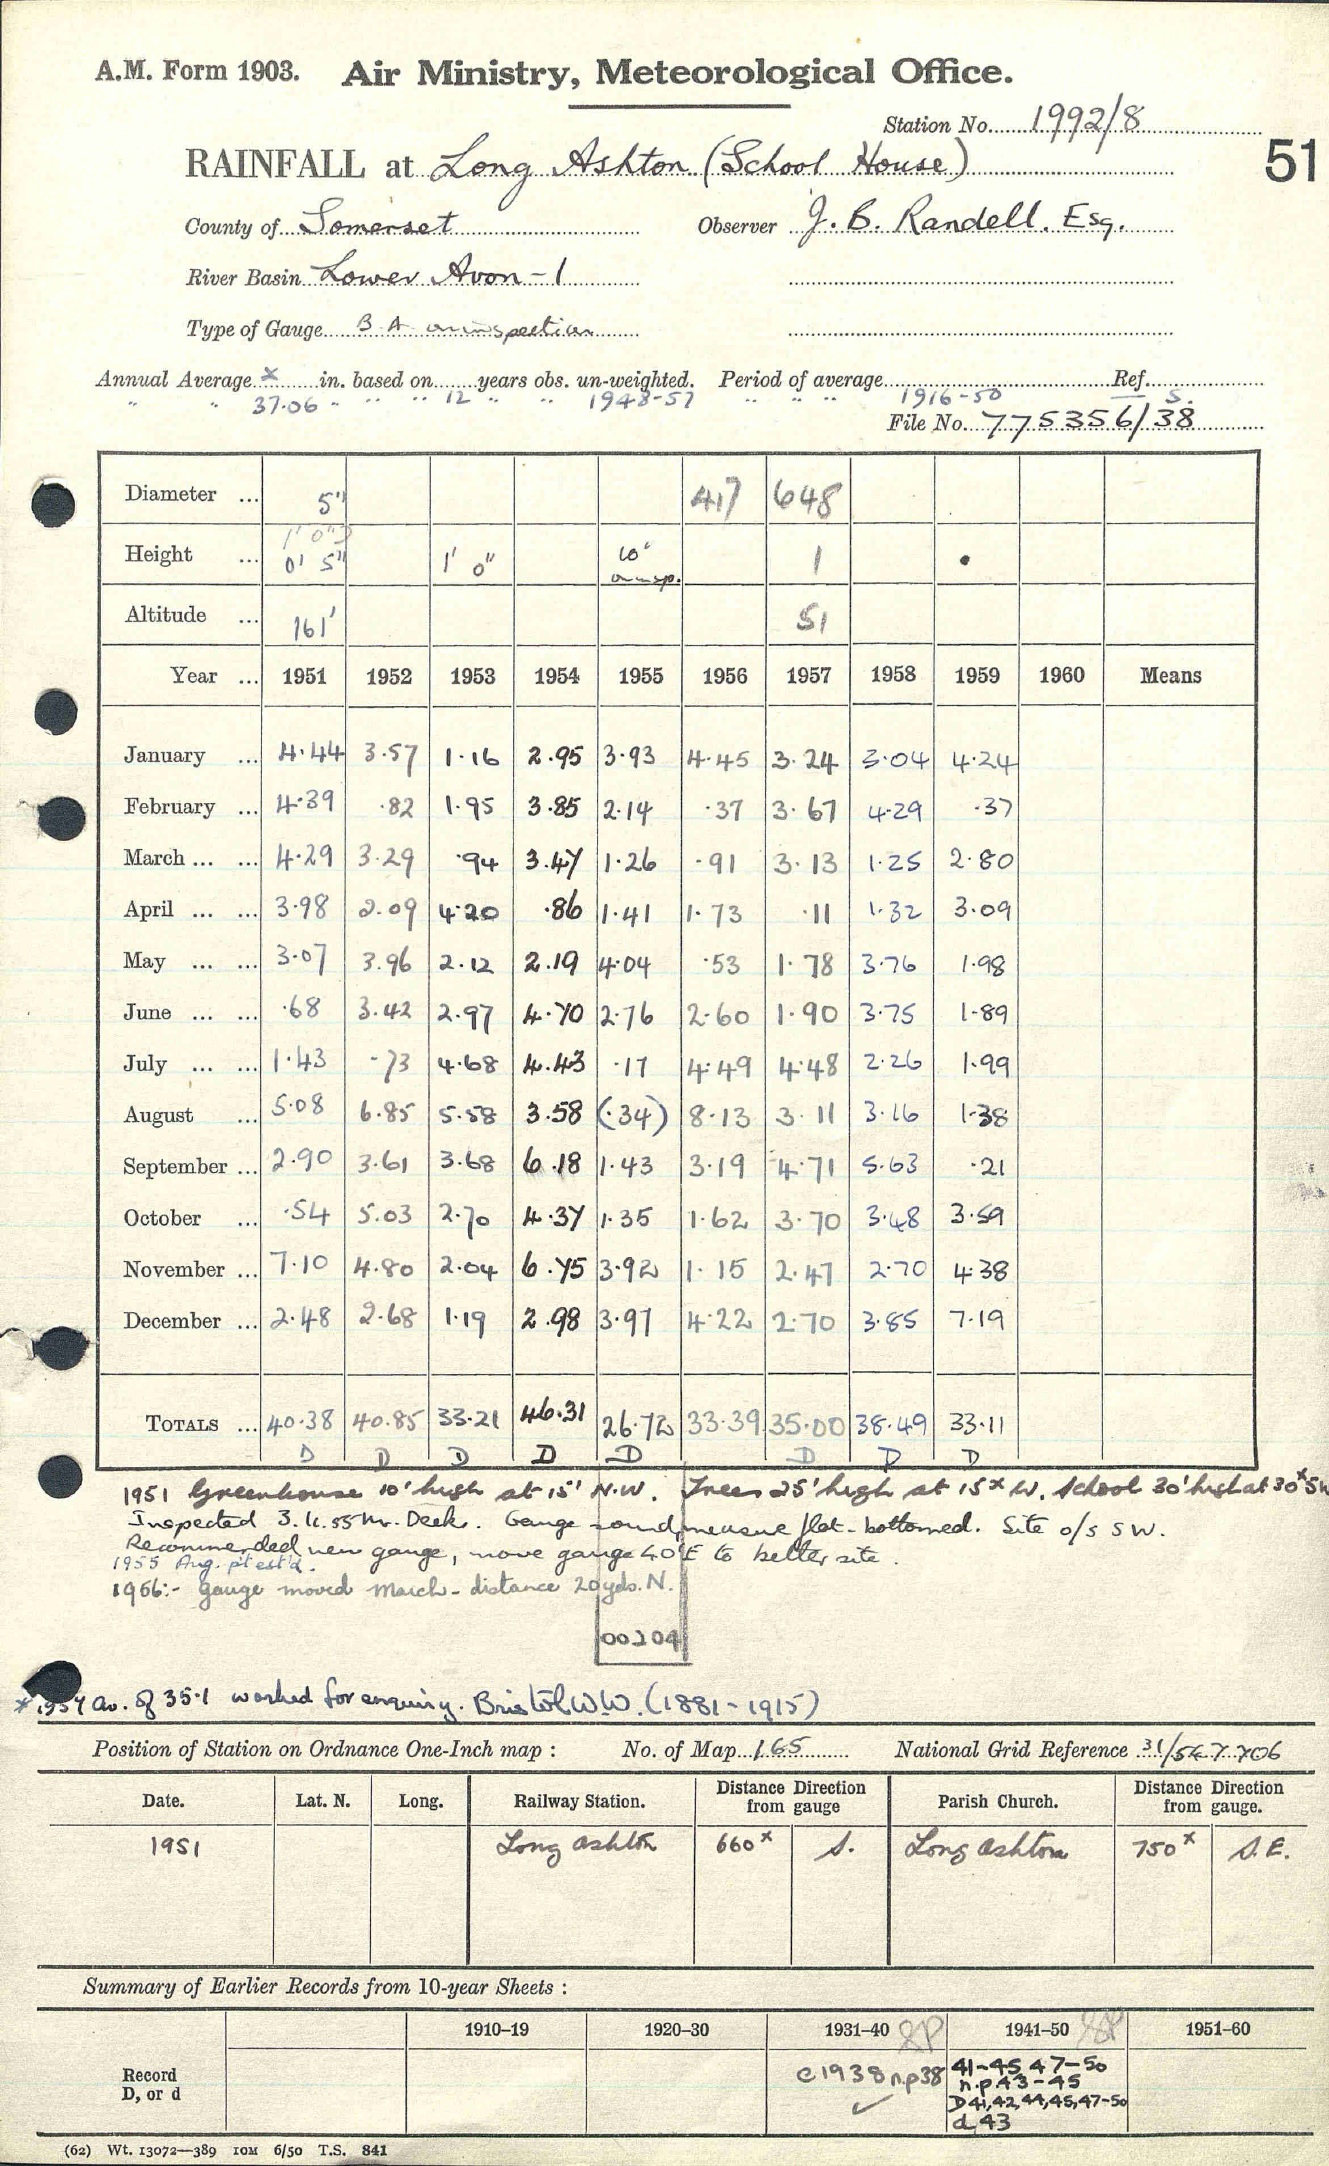 A.M. Form 1903. Air Ministry, Meteorological Office.
Station No. 1992/8
51
RAINFALL at Long Ashton (School House)
County of Somerset Observer J. B. Randell. Esq.
River Basin Lower Avon - 1
Type of Gauge B A on inspection
Annual Average x in. based on years obs. un-weighted. Period of average Ref.
" " 37.06 " " " 12 " " 1948-57 " " " 1916-50 S.
File No. 775356/38
Diameter ... 5" 417 648
1' 0"
Height ... 0' 5" 1' 0" 10" on insp. 1
Altitude ... 161' 51
Year ... 1951 1952 1953 1954 1955 1956 1957 1958 1959 1960 Means
January ... 4.44 3.57 1.16 2.95 3.93 4.45 3.24 3.04 4.24
February ... 4.39 .82 1.95 3.85 2.14 .37 3.67 4.29 .37
March ... ... 4.29 3.29 .94 3.47 1.26 .91 3.13 1.25 2.80
April ... ... 3.98 2.09 4.20 .86 1.41 1.73 .11 1.32 3.09
May ... ... 3.07 3.96 2.12 2.19 4.04 .53 1.78 3.76 1.98
June ... ... .68 3.42 2.97 4.70 2.76 2.60 1.90 3.75 1.89
July ... ... 1.43 .73 4.68 4.43 .17 4.49 4.48 2.26 1.99
August ... 5.08 6.85 5.58 3.58 (.34) 8.13 3.11 3.16 1.38
September ... 2.90 3.61 3.68 6.18 1.43 3.19 4.71 5.63 .21
October ... .54 5.03 2.70 4.37 1.35 1.62 3.70 3.48 3.59
November ... 7.10 4.80 2.04 6.75 3.92 1.15 2.47 2.70 4.38
December ... 2.48 2.68 1.19 2.98 3.97 4.22 2.70 3.85 7.19
TOTALS ... 40.38 40.85 33.21 46.31 26.72 33.39 35.00 38.49 33.11
D D D D D D D D
1951 Greenhouse 10' high at 15' N.W. Trees 25' high at 15x W. School 30' high at 30x SW
Inspected 3.11.55 Mr. Deek. Gauge sound, measure flat-bottomed. Site o/s SW.
Recommended new gauge, move gauge 40' E to better site.
1955 Aug. pt est'd.
1956:- gauge moved March - distance 20 yds. N.
00204
* 1954 av. of 35.1 worked for enquiry. Bristol W.W. (1881-1915)
Position of Station on Ordnance One-Inch map : No. of Map 165 National Grid Reference 31/547706
Date. Lat. N. Long. Railway Station. Distance from gauge Direction Parish Church. Distance from gauge. Direction
1951 Long Ashton 660x S. Long Ashton 750x S.E.
Summary of Earlier Records from 10-year Sheets :
1910-19 1920-30 1931-40 SP 1941-50 SP 1951-60
Record
D, or d
c1938 n.p 38 ✓
41-45 47-50
n.p 43-45
D 41,42,44,45,47-50
d 43
(62) Wt. 13072—389 IOM 6/50 T.S. 841